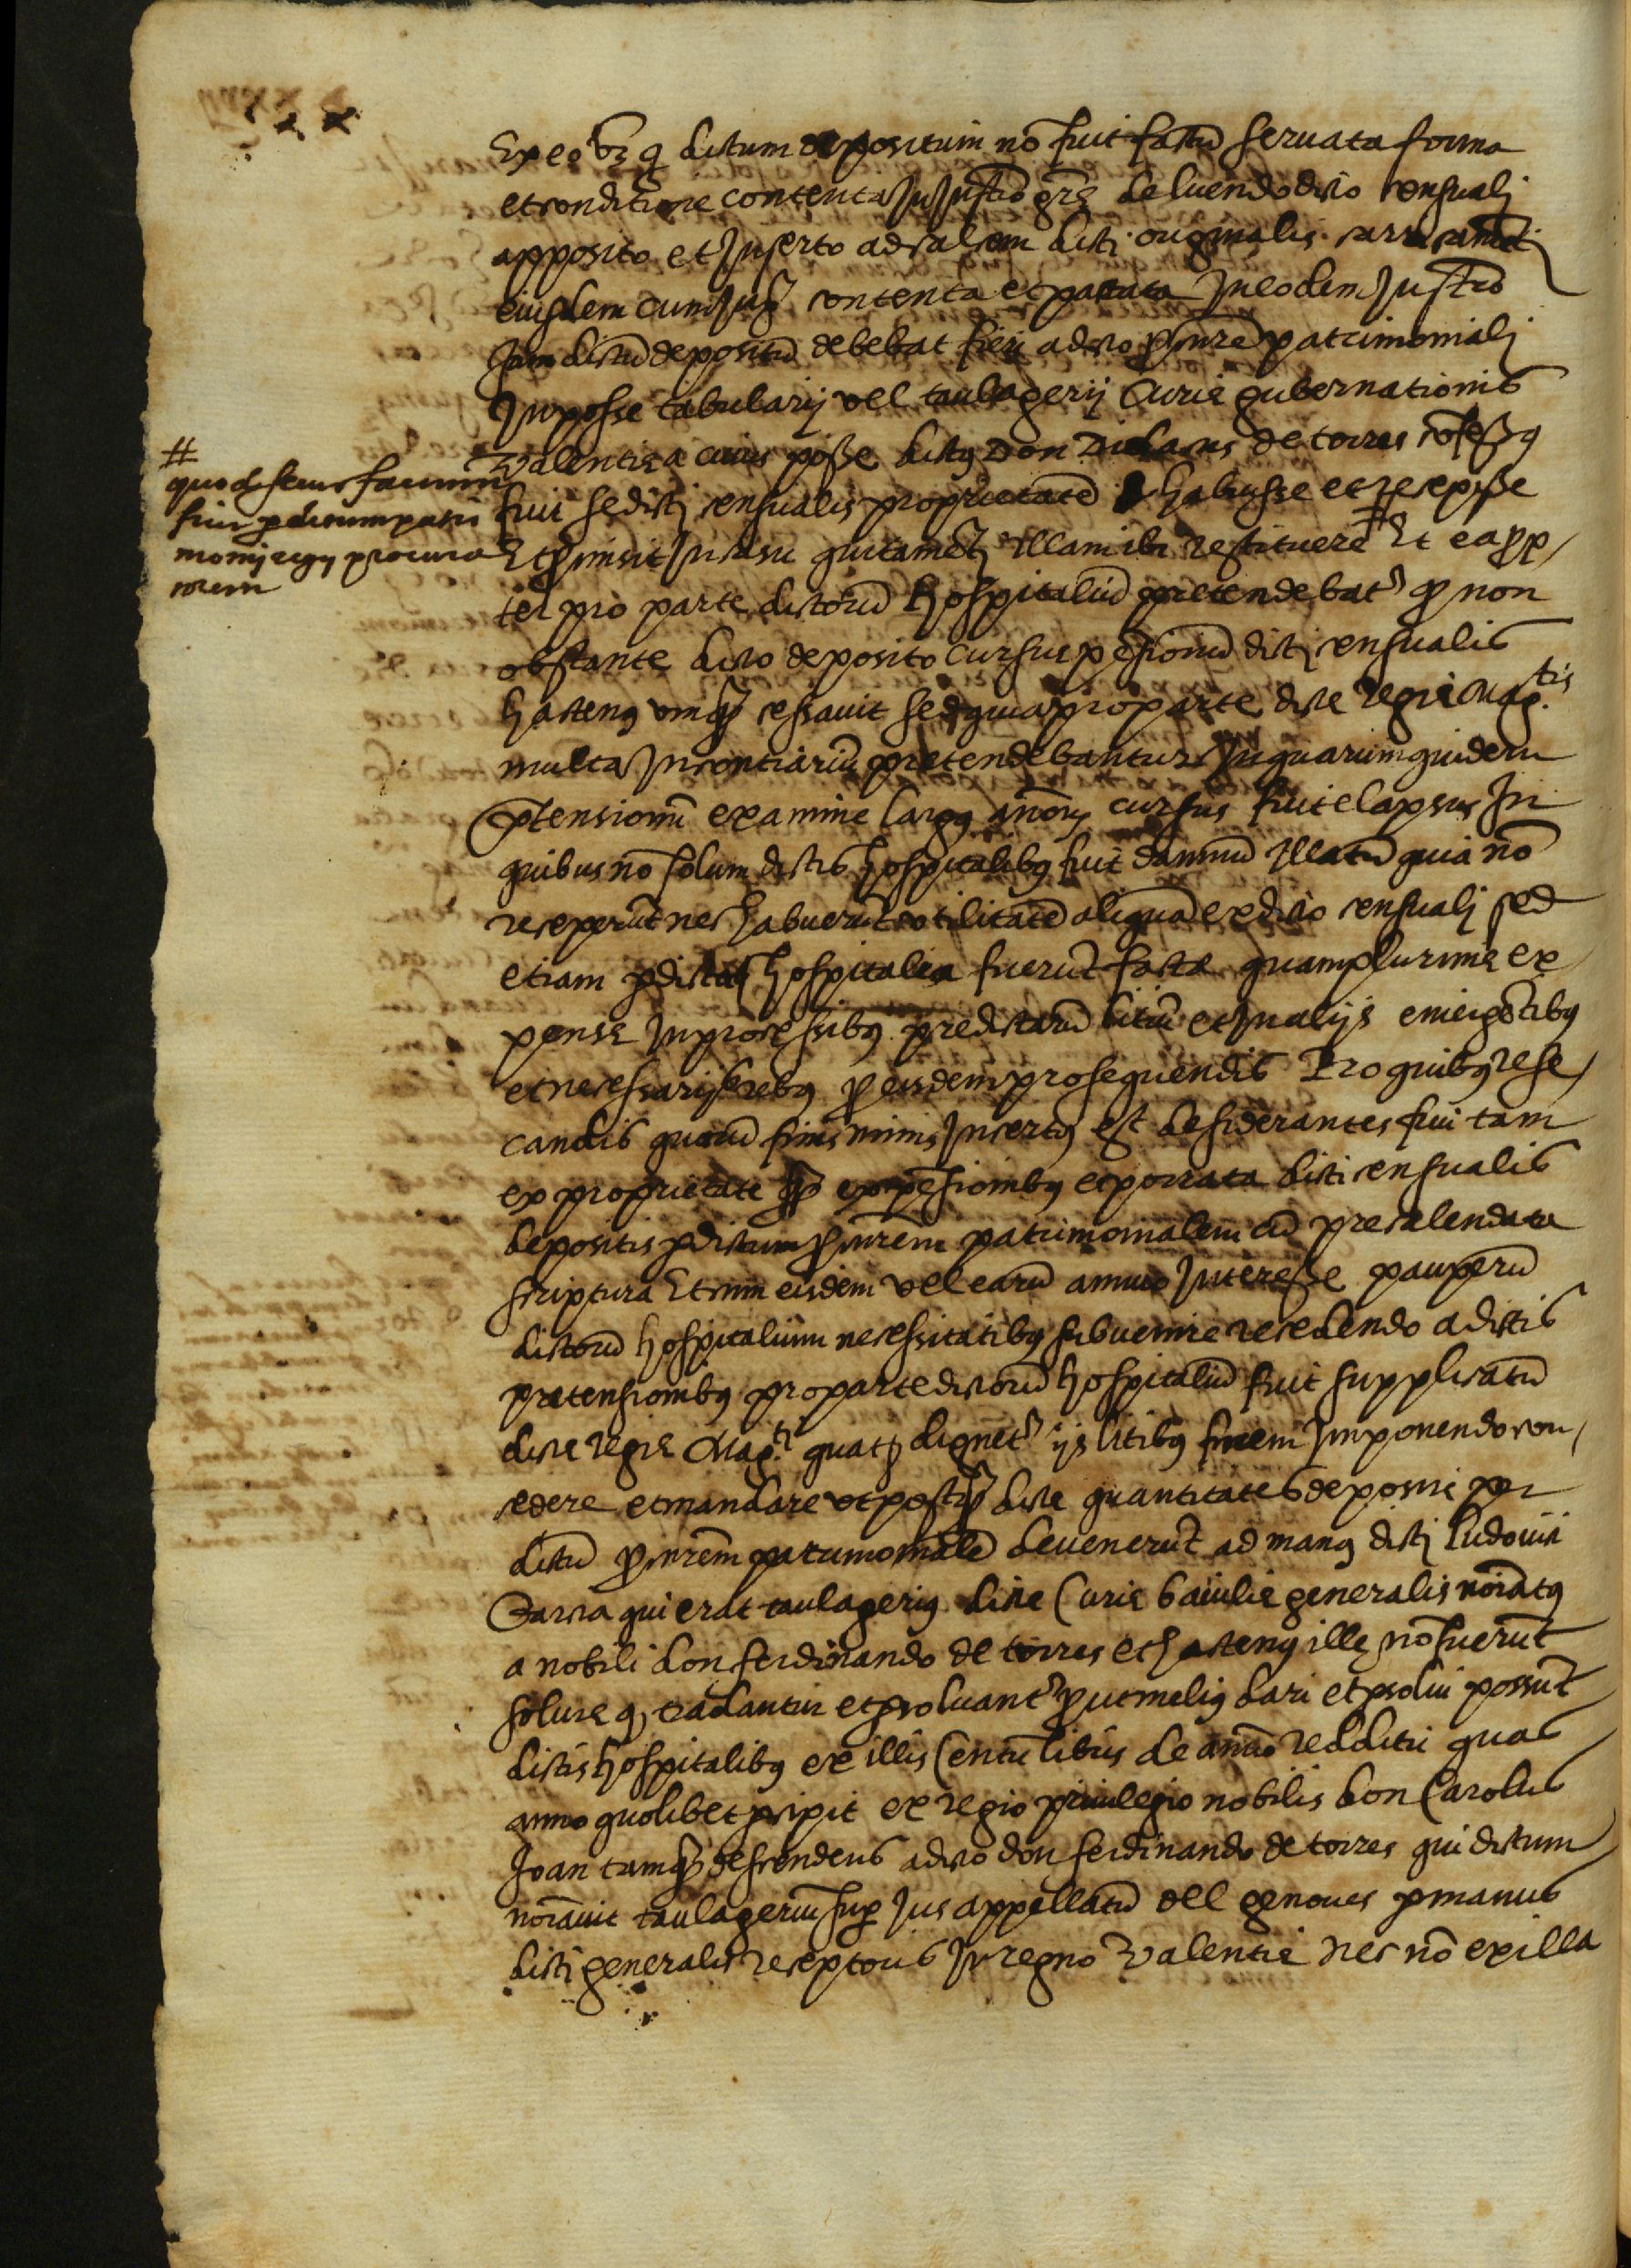 Ex eo vz q dictum depositum nõ fuit factũ servata forma
et conditione contenta In Instrõ gre de luendo dicto censualj
apposito et Inserto ad calcem dictj originalis
eiusdem cum Iusta contenta et pactata In eodem Instrõ
Iam dictũ depositũ debebat fierj a dicto patrimonialj
In posse tabularij vel taulagerij Curie gubernationis
Valentie a cuius posse dictus Don de torres
fuit se dictj censualis proprietatẽ habuisse et recepisse
Et In casu quitamentj Illam ibi restituere # Et ea prop/
ter pro parte dictorũ hospitaliũ pretendebat' q non
obstante dicto deposito cursus pẽsionũ dictj censualis
hactenus cessavit sed quia pro parte dicte regie Mag.tis
multa In contrariũ pretendebantur In quarum quidem
ptensionũ examine largus annorum cursus fuit elapsus In
quibus nõ solum dictis hospitalibus fuit damnũ Illatũ quia nõ
receperũt nec habuerũt utilitatẽ aliquã ex dicto censualj sed
etiam p dicta hospitalia fuerũt facte quamplurime ex
pense In processibus predictarũ litiũ et In alijs emergẽtibus
et necessarijs rebus p eisdem prosequendis Pro quibus rese/
candis quorũ finis nimis Incertus est desiderantes frui tam
ex proprietate ex pẽsionibus et porrata dicti censualis
depositis p dictum patrimonialem cũ precalendata
scriptura Et cum eisdem vel earũ annuo Interesse pauperũ
dictorũ hospitalium necessitatibus subvenire recedendo a dictis
pretensionibus pro parte dictorũ hospitaliũ fuit supplicatũ
dicte regie Mag.ti quatus dignet' ijs litibus finem Imponendo con/
cedere et mandare ut postq dicte quantitates deposite per
dictũ patrimonialẽ devenerũt ad manus dictj ludovici
Garcia qui erat taulagerius dicte Curie baiulie generalis noĩatus
a nobili don ferdinando de torres et hactenus ille nõ fuerũt
solute q, tradantur et psolvant' prout melius dari et psolvi possũt
dictis hospitalibus ex illis Centũ libris de annuo redditu quas
anno quolibet pcipit ex regio privilegio nobilis don Carolus
Joan tamq descendens a dicto don ferdinando de torres qui dictum
noĩavit taulageriũ sup Ius appellatũ del genoves p manus
dictj generalis receptoris In regno Valentie nec nõ ex illa
#
quod secus factum
fuit p dictum patri
monij regij procura
torem